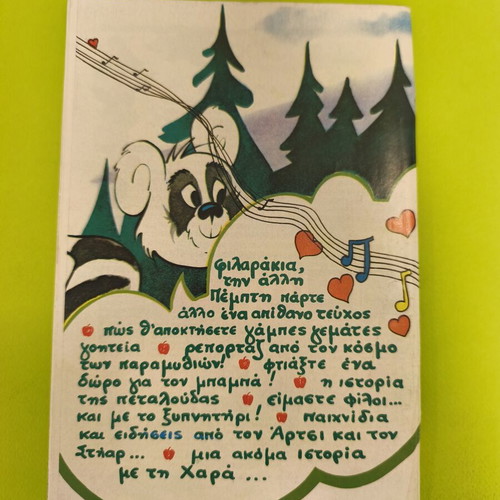 φιλαράκια,
την άλλη
Πέμπτη πάρτε
άλλο ένα απίθανο τεύχος
πώς θ'αποκτήσετε γάμπες γεμάτες
γοητεία ρεπορτάζ από τον κόσμο
των παραμυθιών! φτιάξτε ένα
δώρο για τον μπαμπά! η ιστορία
της πεταλούδας είμαστε φίλοι...
και με το ξυπνητήρι! παιχνίδια
και ειδήσεις από τον Άρτσι και τον
Στήαρ... μια ακόμα ιστορία
με τη Χαρά ...